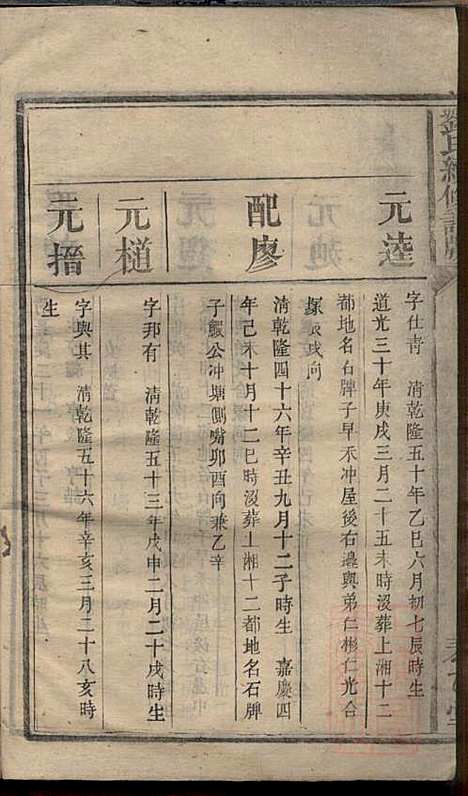 元達
字仕青　清乾隆五十年乙巳六月初七辰時生
道光三十年庚戌三月二十五未時沒葬上湘十二
都地名石牌子早禾冲屋後右邊與弟仁彬仁光合
塚辰戌向
配廖
清乾隆四十六年辛丑九月十二子時生　嘉慶四
年己未十月十二巳時沒葬上湘十二都地名石牌
子鰕公冲塘側嘴卯酉向兼乙辛
元槌
字邦有　清乾隆五十三年戊申二月二十戌時生
元搢
字與其　清乾隆五十六年辛亥三月二十八亥時
生